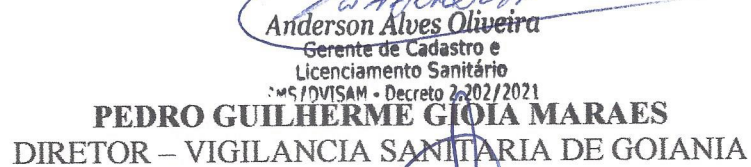 Anderson Alves Oliveira
Gerente de Cadastro e
Licenciamento Sanitário
SMS/DVISAM - Decreto 2.202/2021
PEDRO GUILHERME GIOIA MARAES
DIRETOR – VIGILANCIA SANITARIA DE GOIANIA